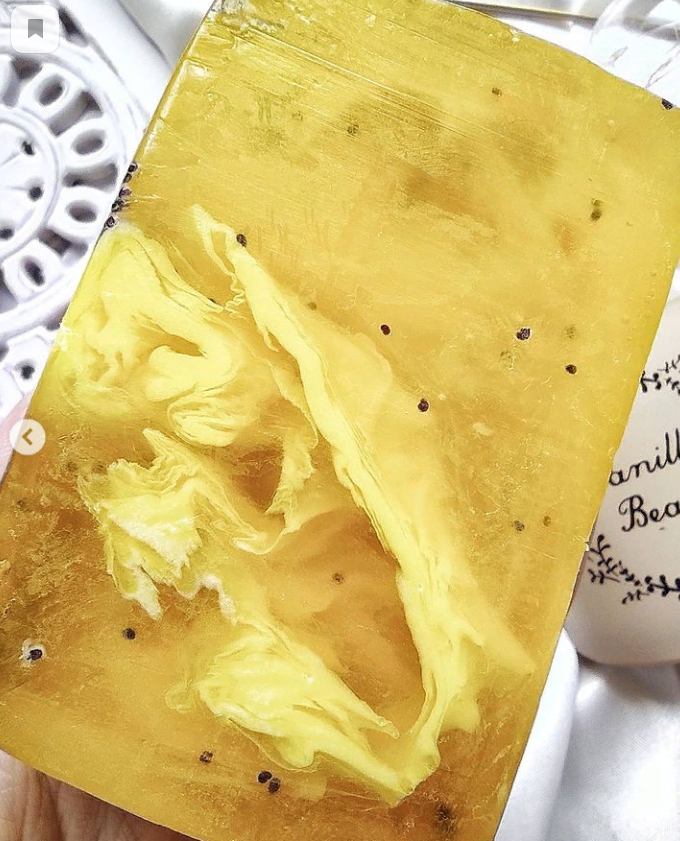 anill
Bea